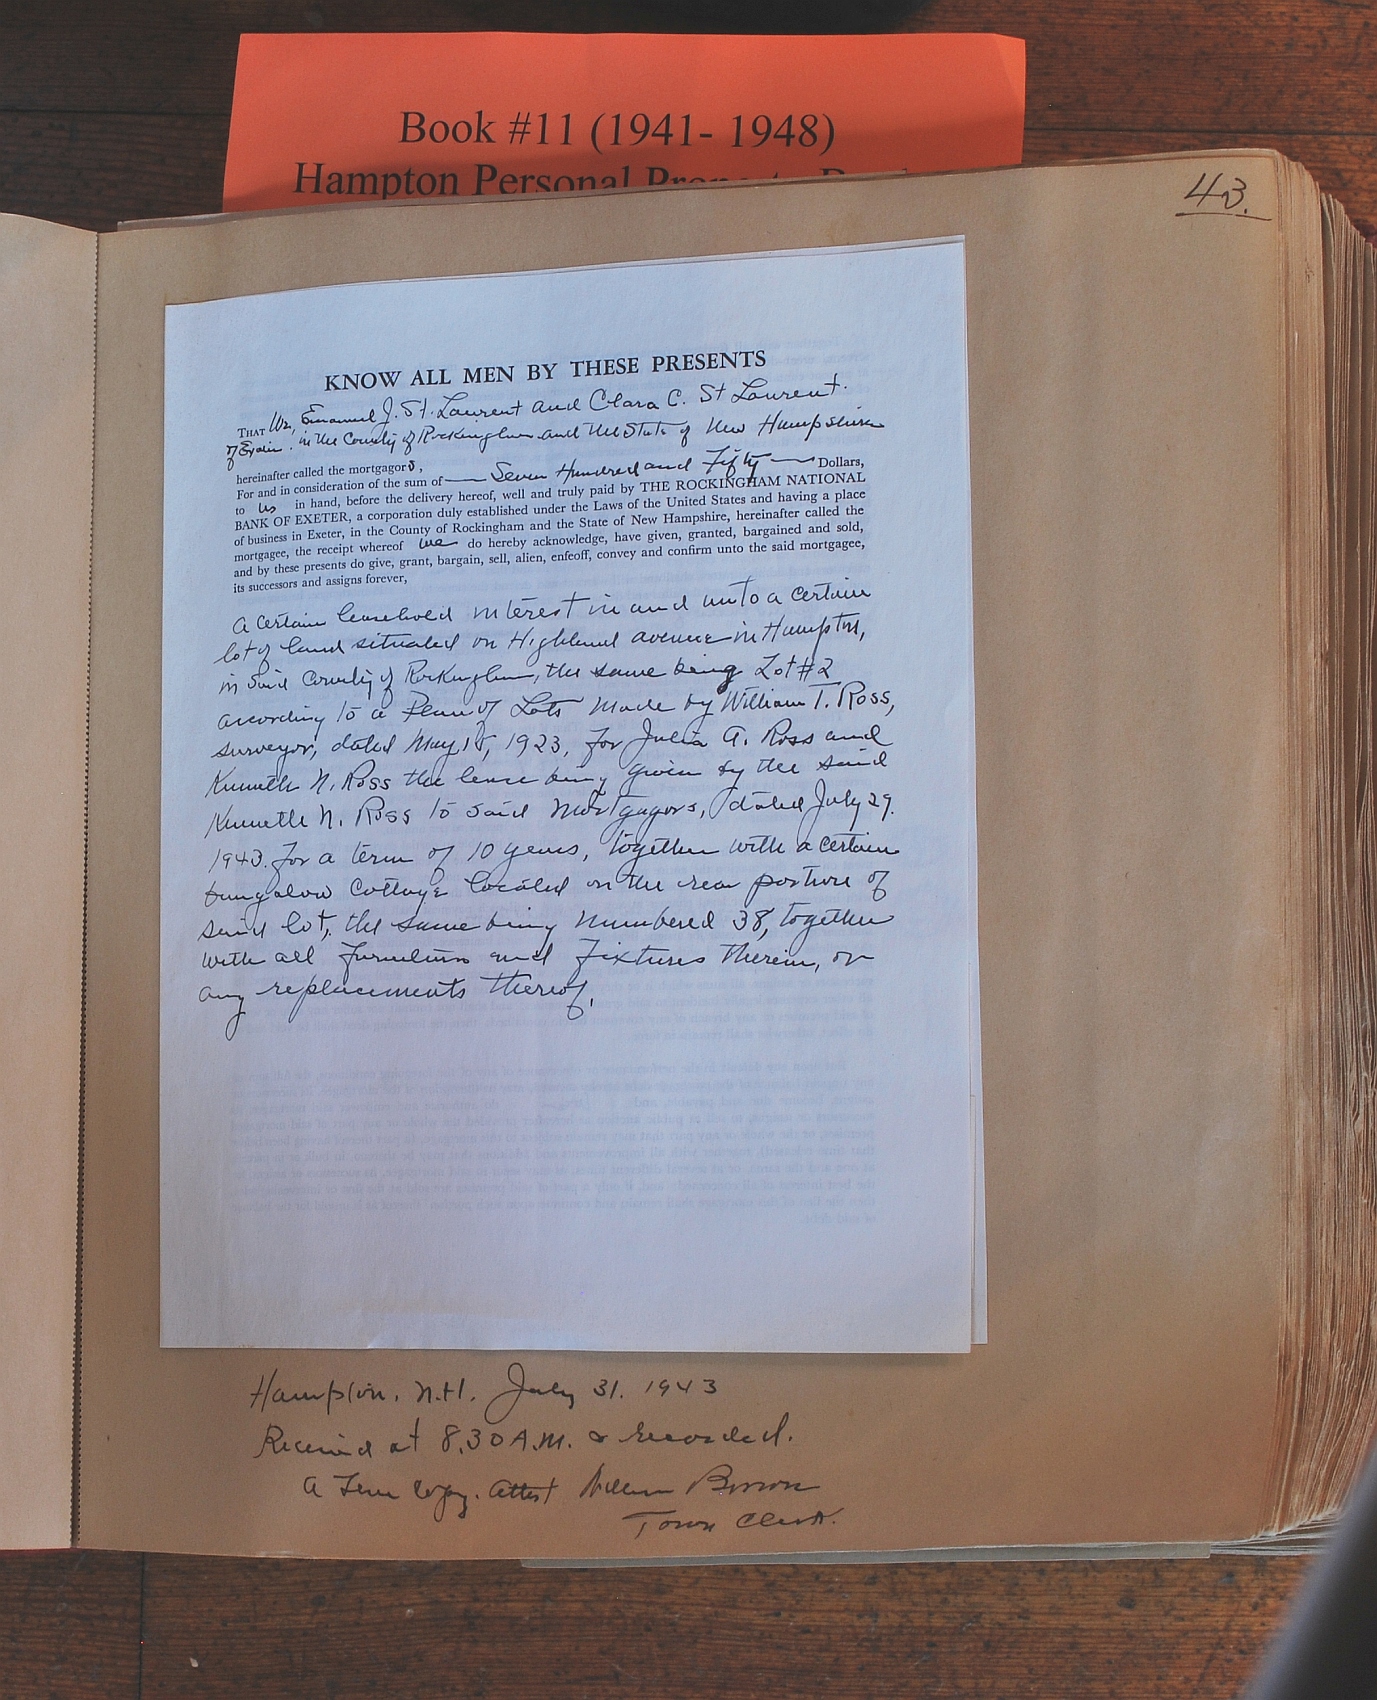 Book #11 (1941- 1948)
Hampton Personal Property
43.
KNOW ALL MEN BY THESE PRESENTS
THAT We, Emanuel J. St. Laurent and Clara C. St Laurent.
of in the County of Rockingham and the State of New Hampshire
hereinafter called the mortgagors,
For and in consideration of the sum of — Seven Hundred and Fifty — Dollars,
to us in hand, before the delivery hereof, well and truly paid by THE ROCKINGHAM NATIONAL
BANK OF EXETER, a corporation duly established under the Laws of the United States and having a place
of business in Exeter, in the County of Rockingham and the State of New Hampshire, hereinafter called the
mortgagee, the receipt whereof we do hereby acknowledge, have given, granted, bargained and sold,
and by these presents do give, grant, bargain, sell, alien, enfeoff, convey and confirm unto the said mortgagee,
its successors and assigns forever,
a certain leasehold interest in and unto a certain
lot of land situated on Highland avenue in Hampton,
in said County of Rockingham, the same being Lot #2
according to a Plan of Lots made by William T. Ross,
surveyor, dated May 18, 1923, for Julia A. Ross and
Kenneth N. Ross the lease being given by the said
Kenneth N. Ross to said Mortgagors, dated July 29.
1943. for a term of 10 years, together with a certain
bungalow cottage located on the rear portion of
said lot, the same being numbered 38, together
with all furniture and fixtures therein, or
any replacements thereof.
Hampton, N.H. July 31. 1943
Received at 8.30 A.M. & recorded.
A True Copy. Attest William Brown
Town Clerk.